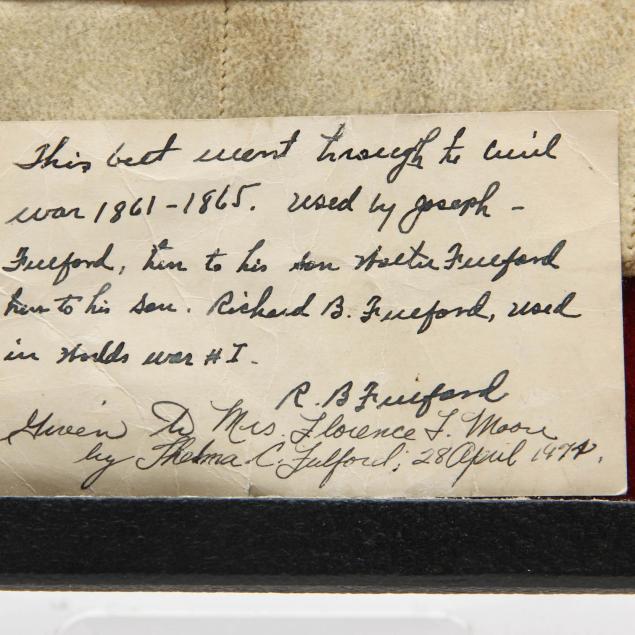 This belt went through the Civil
war 1861-1865. Used by Joseph -
Fulford, then to his son Walter Fulford
then to his son. Richard B. Fulford, used
in Worlds war # I.
R. B Fulford
Given To Mrs. Florence F. Moore
by Thelma C. Fulford; 28 April